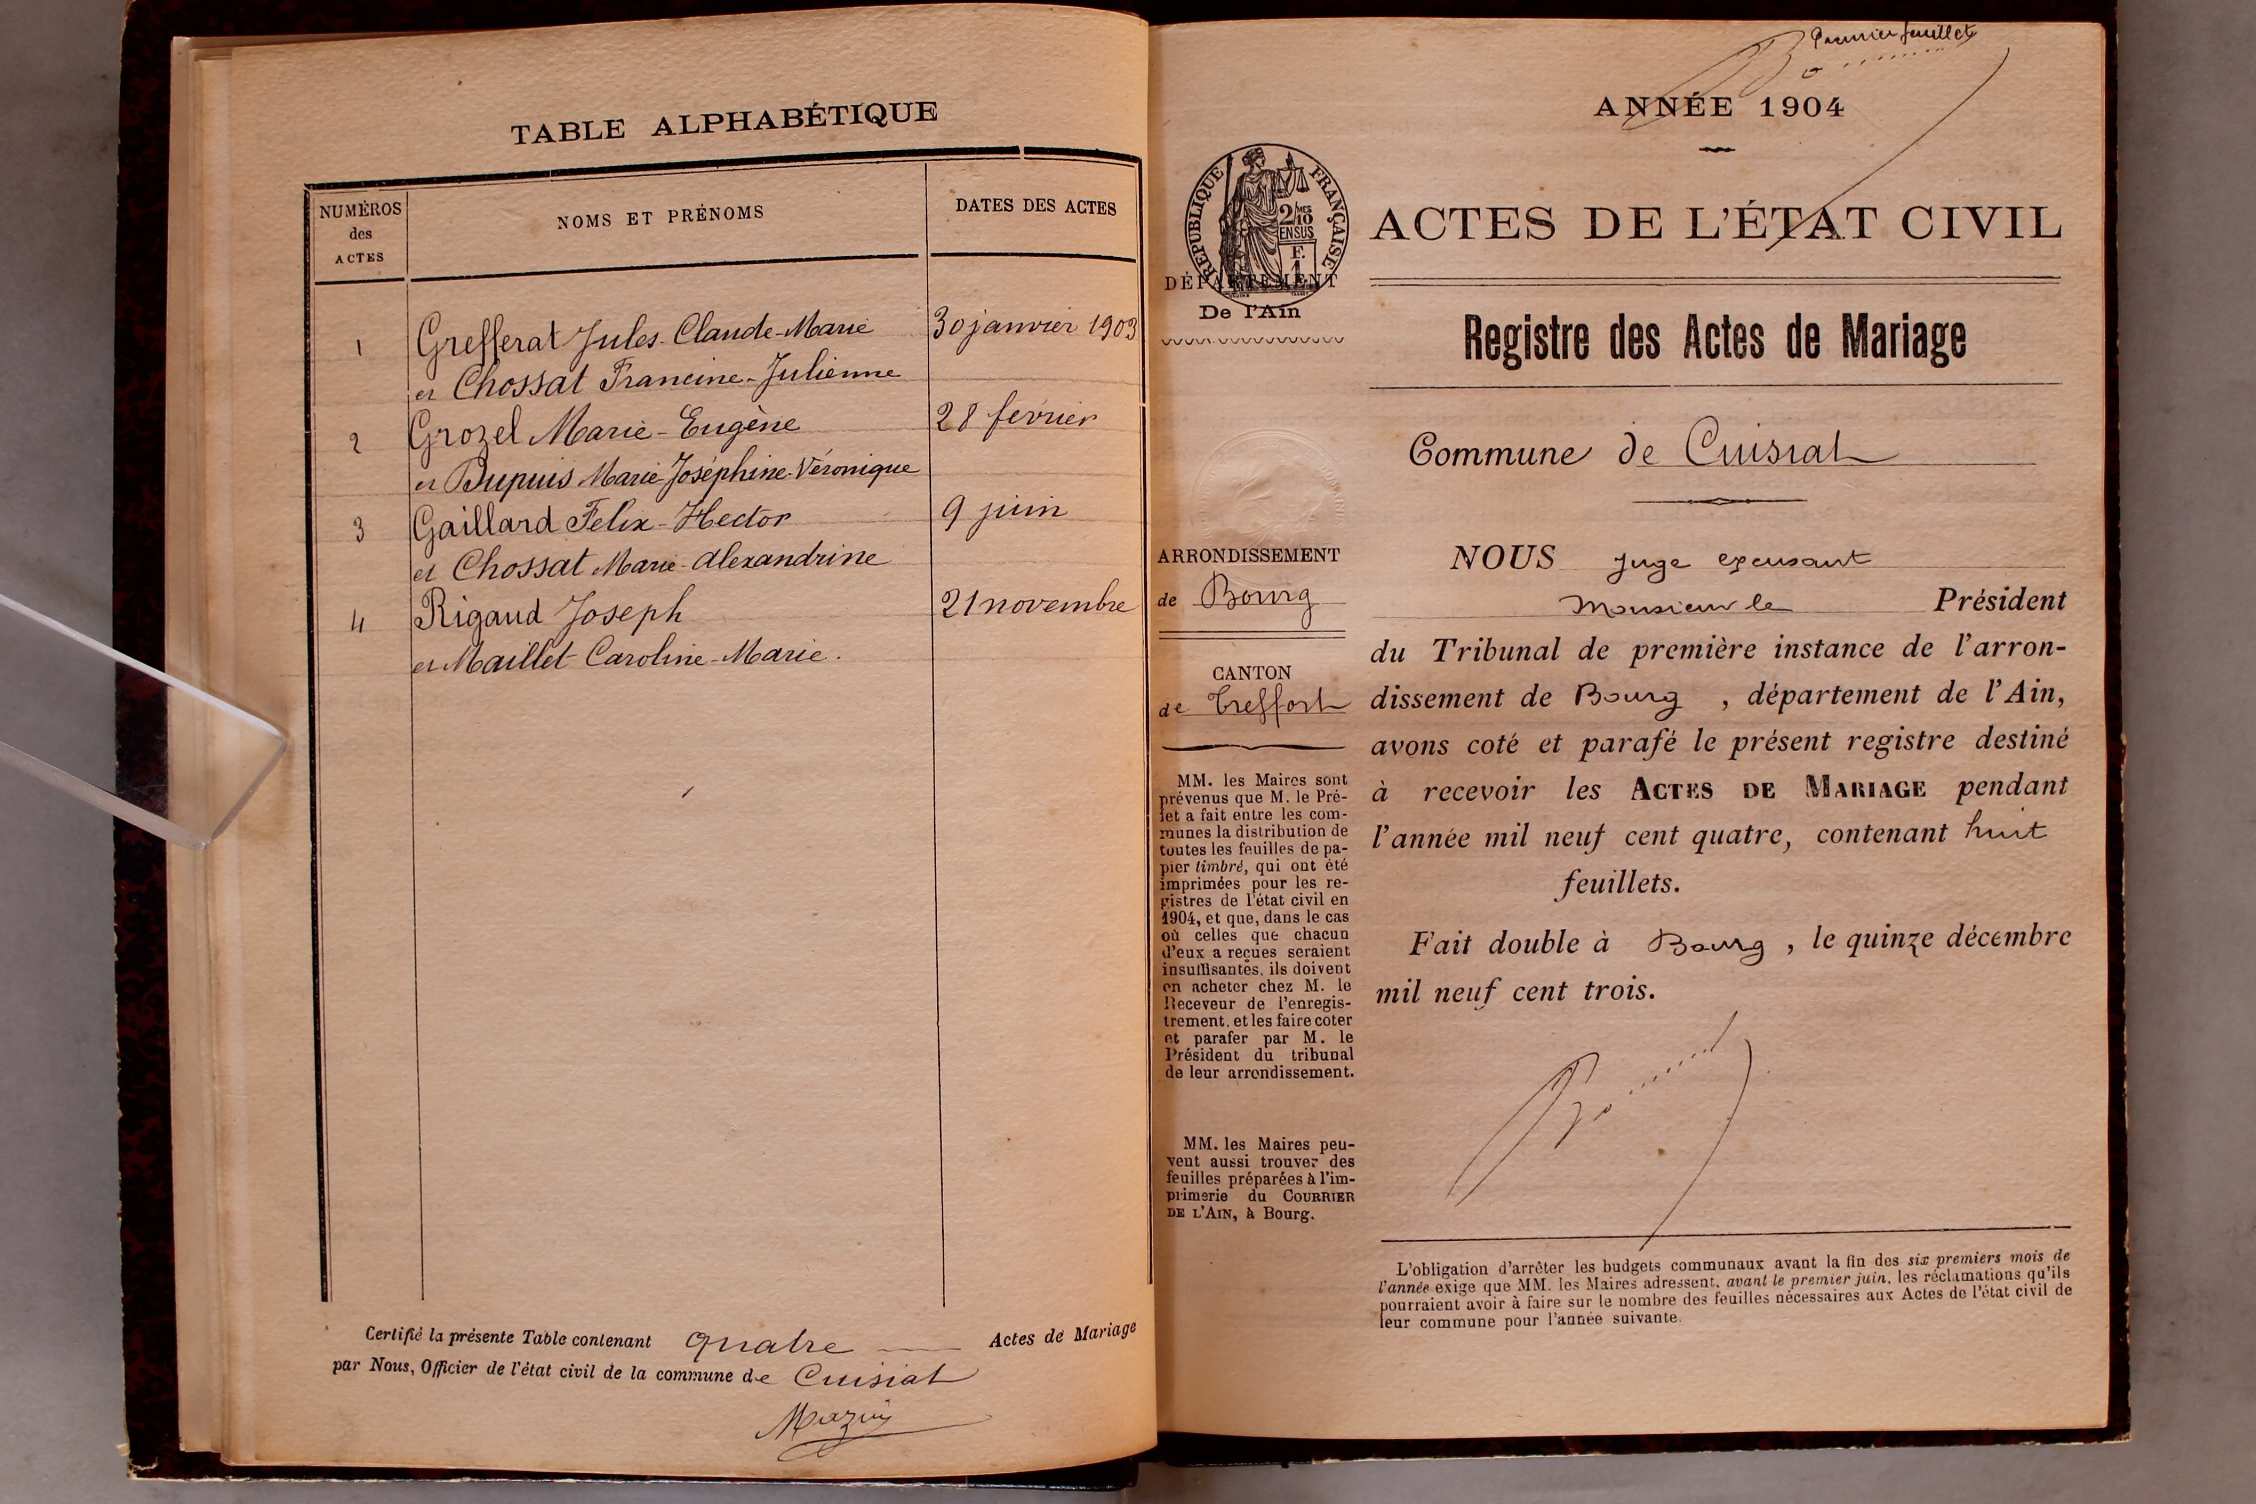 TABLE ALPHABÉTIQUE
NUMÉROS des ACTES
NOMS ET PRÉNOMS
DATES DES ACTES
1 Grefferat Jules-Claude-Marie 30 janvier 1903
et Chossat Francine-Julienne
2 Grozel Marie-Eugène 28 février
et Dupuis Marie-Joséphine-Véronique
3 Gaillard Felix-Hector 9 juin
et Chossat Marie-Alexandrine
4 Rigaud Joseph 21 novembre
et Maillet Caroline-Marie.
Certifié la présente Table contenant quatre Actes de Mariage
par Nous, Officier de l'état civil de la commune de Cuisiat
Premier feuillet
ANNÉE 1904
RÉPUBLIQUE FRANÇAISE
2/10 MES
EN SUS
F.
1
DÉPARTEMENT
De l'Ain
ARRONDISSEMENT
de Bourg
CANTON
de Treffort
MM. les Maires sont
prévenus que M. le Pré-
fet a fait entre les com-
munes la distribution de
toutes les feuilles de pa-
pier timbré, qui ont été
imprimées pour les re-
gistres de l'état civil en
1904, et que, dans le cas
où celles que chacun
d'eux a reçues seraient
insuffisantes, ils doivent
en acheter chez M. le
Receveur de l'enregis-
trement, et les faire coter
et parafer par M. le
Président du tribunal
de leur arrondissement.
MM. les Maires peu-
vent aussi trouver des
feuilles préparées à l'im-
primerie du COURRIER
DE L'AIN, à Bourg.
ACTES DE L'ÉTAT CIVIL
Registre des Actes de Mariage
Commune de Cuisiat
NOUS Juge excusant
Monsieur le Président
du Tribunal de première instance de l'arron-
dissement de Bourg, département de l'Ain,
avons coté et parafé le présent registre destiné
à recevoir les ACTES DE MARIAGE pendant
l'année mil neuf cent quatre, contenant huit
feuillets.
Fait double à Bourg, le quinze décembre
mil neuf cent trois.
L'obligation d'arrêter les budgets communaux avant la fin des six premiers mois de
l'année exige que MM. les Maires adressent, avant le premier juin, les réclamations qu'ils
pourraient avoir à faire sur le nombre des feuilles nécessaires aux Actes de l'état civil de
leur commune pour l'année suivante.